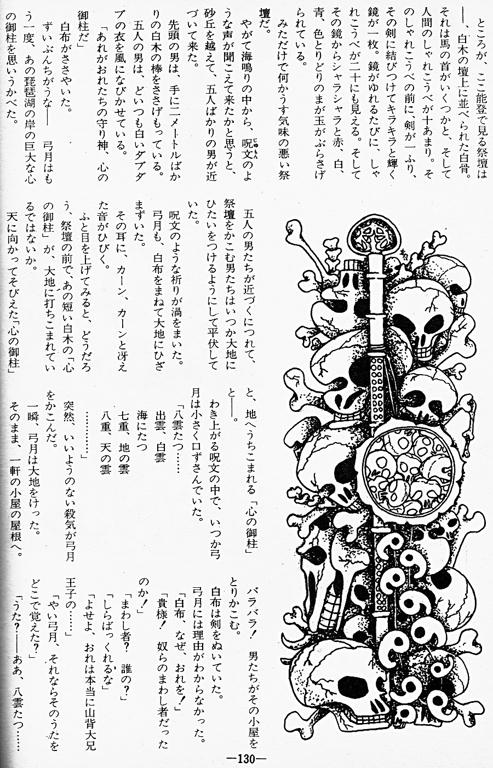 ところが、ここ能登で見る祭壇は
――、白木の壇上に並べられた白骨。
それは馬の首がいくつかと、そして
人間のしゃれこうべが十あまり。そ
のしゃれこうべの前に、剣が一ふり、
その剣に結びつけてキラキラと輝く
鏡が一枚。鏡がゆれるたびに、しゃ
れこうべが二十にも見える。そして
その鏡からシャラシャラと赤、白、
青、色とりどりのまが玉がぶらさげ
られている。
みただけで何かうす気味の悪い祭
壇だ。
やがて海鳴りの中から、呪文のよ
うな声が聞こえて来たかと思うと、
砂丘を越えて、五人ばかりの男が近
づいて来た。
先頭の男は、手に二メートルばか
りの白木の棒をささげもっている。
五人の男は、どいつも白いダブダ
ブの衣を風になびかせている。
「あれがおれたちの守り神、心の
御柱だ」
白布がささやいた。
ずいぶんちがうな――弓月はも
う一度、あの琵琶湖の岸の巨大な心
の御柱を思いうかべた。
五人の男たちが近づくにつれて、
祭壇をかこむ男たちはいつか大地に
ひたいをつけるようにして平伏して
いた。
呪文のような祈りが渦をまいた。
弓月も、白布をまねて大地にひざ
まずいた。
その耳に、カーン、カーンと冴え
た音がひびく。
ふと目を上げてみると、どうだろ
う、祭壇の前で、あの短い白木の「心
の御柱」が、大地に打ちこまれてい
るではないか。
天に向かってそびえた「心の御柱」
と、地へうちこまれる「心の御柱」
と――。
わき上がる呪文の中で、いつか弓
月は小さく口ずさんでいた。
「八雲たつ……
出雲、白雲
海にたつ
七重、地の雲
八重、天の雲
…………」
突然、いいようのない殺気が弓月
をかこんだ。
一瞬、弓月は大地をけった。
そのまま、一軒の小屋の屋根へ。
バラバラ! 男たちがその小屋を
とりかこむ。
白布は剣をぬいていた。
弓月には理由がわからなかった。
「白布、なぜ、おれを!」
「貴様! 奴らのまわし者だった
のか!」
「まわし者? 誰の?」
「しらばっくれるな」
「よせよ、おれは本当に山背大兄
王子の……」
「やい弓月、それならそのうたを
どこで覚えた?」
「うた?――ああ、八雲たつ……
―130―